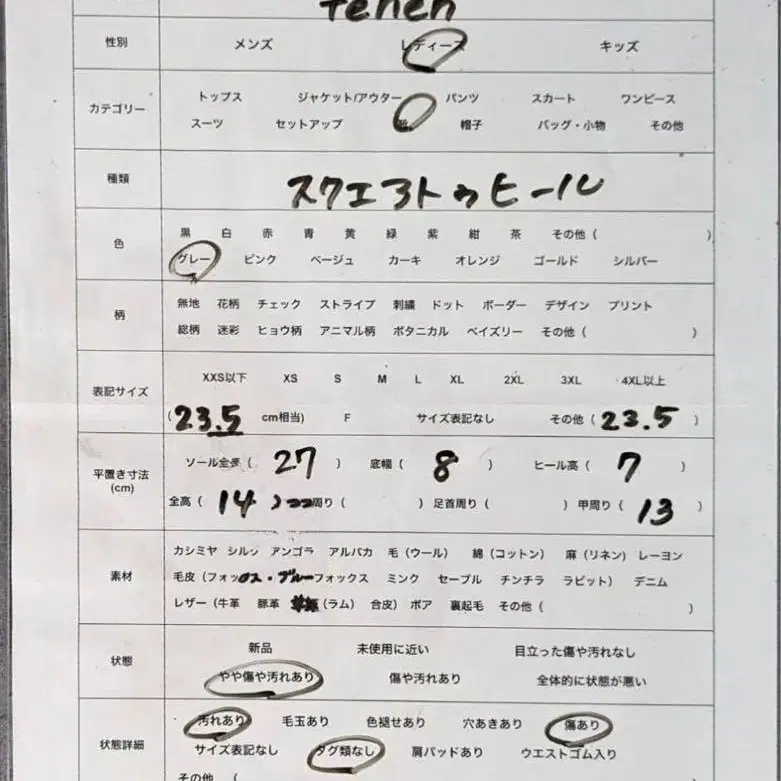 fehen
性別 メンズ レディース キッズ
カテゴリー
トップス ジャケット/アウター パンツ スカート ワンピース
スーツ セットアップ 帽子 バッグ・小物 その他
種類 スクエアトゥヒール
色
黒 白 赤 青 黄 緑 紫 紺 茶 その他 ( )
グレー ピンク ベージュ カーキ オレンジ ゴールド シルバー
柄
無地 花柄 チェック ストライプ 刺繍 ドット ボーダー デザイン プリント
総柄 迷彩 ヒョウ柄 アニマル柄 ボタニカル ペイズリー その他 ( )
表記サイズ
XXS以下 XS S M L XL 2XL 3XL 4XL以上
(23.5 cm相当) F サイズ表記なし その他 (23.5)
平置き寸法
(cm)
ソール全長 ( 27 ) 底幅 ( 8 ) ヒール高 ( 7 )
全高 ( 14 ) 周り ( ) 足首周り ( ) 甲周り ( 13 )
素材
カシミヤ シルク アンゴラ アルパカ 毛 (ウール) 綿 (コットン) 麻 (リネン) レーヨン
毛皮 (フォックス・ブルーフォックス ミンク セーブル チンチラ ラビット) デニム
レザー (牛革 豚革 (ラム) 合皮) ボア 裏起毛 その他 ( )
状態
新品 未使用に近い 目立った傷や汚れなし
やや傷や汚れあり 傷や汚れあり 全体的に状態が悪い
状態詳細
汚れあり 毛玉あり 色褪せあり 穴あきあり 傷あり
サイズ表記なし タグ類なし 肩パッドあり ウエストゴム入り
その他 (